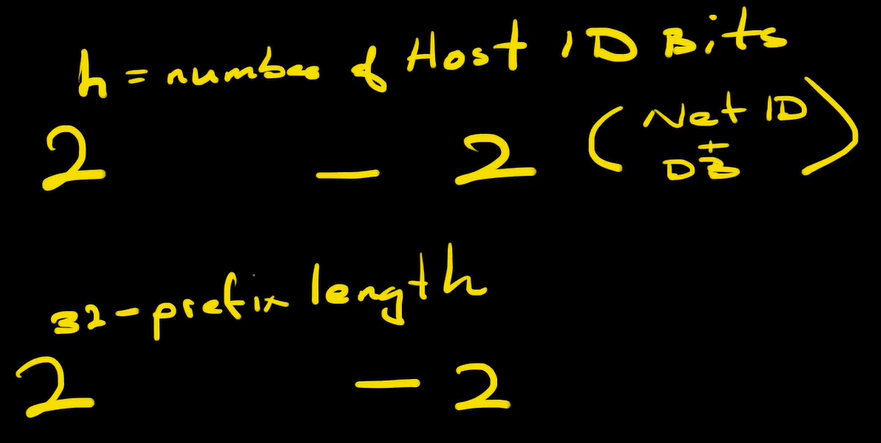 h = number of Host ID Bits
2 - 2 (Net ID + DB)
32-prefix length
2 - 2